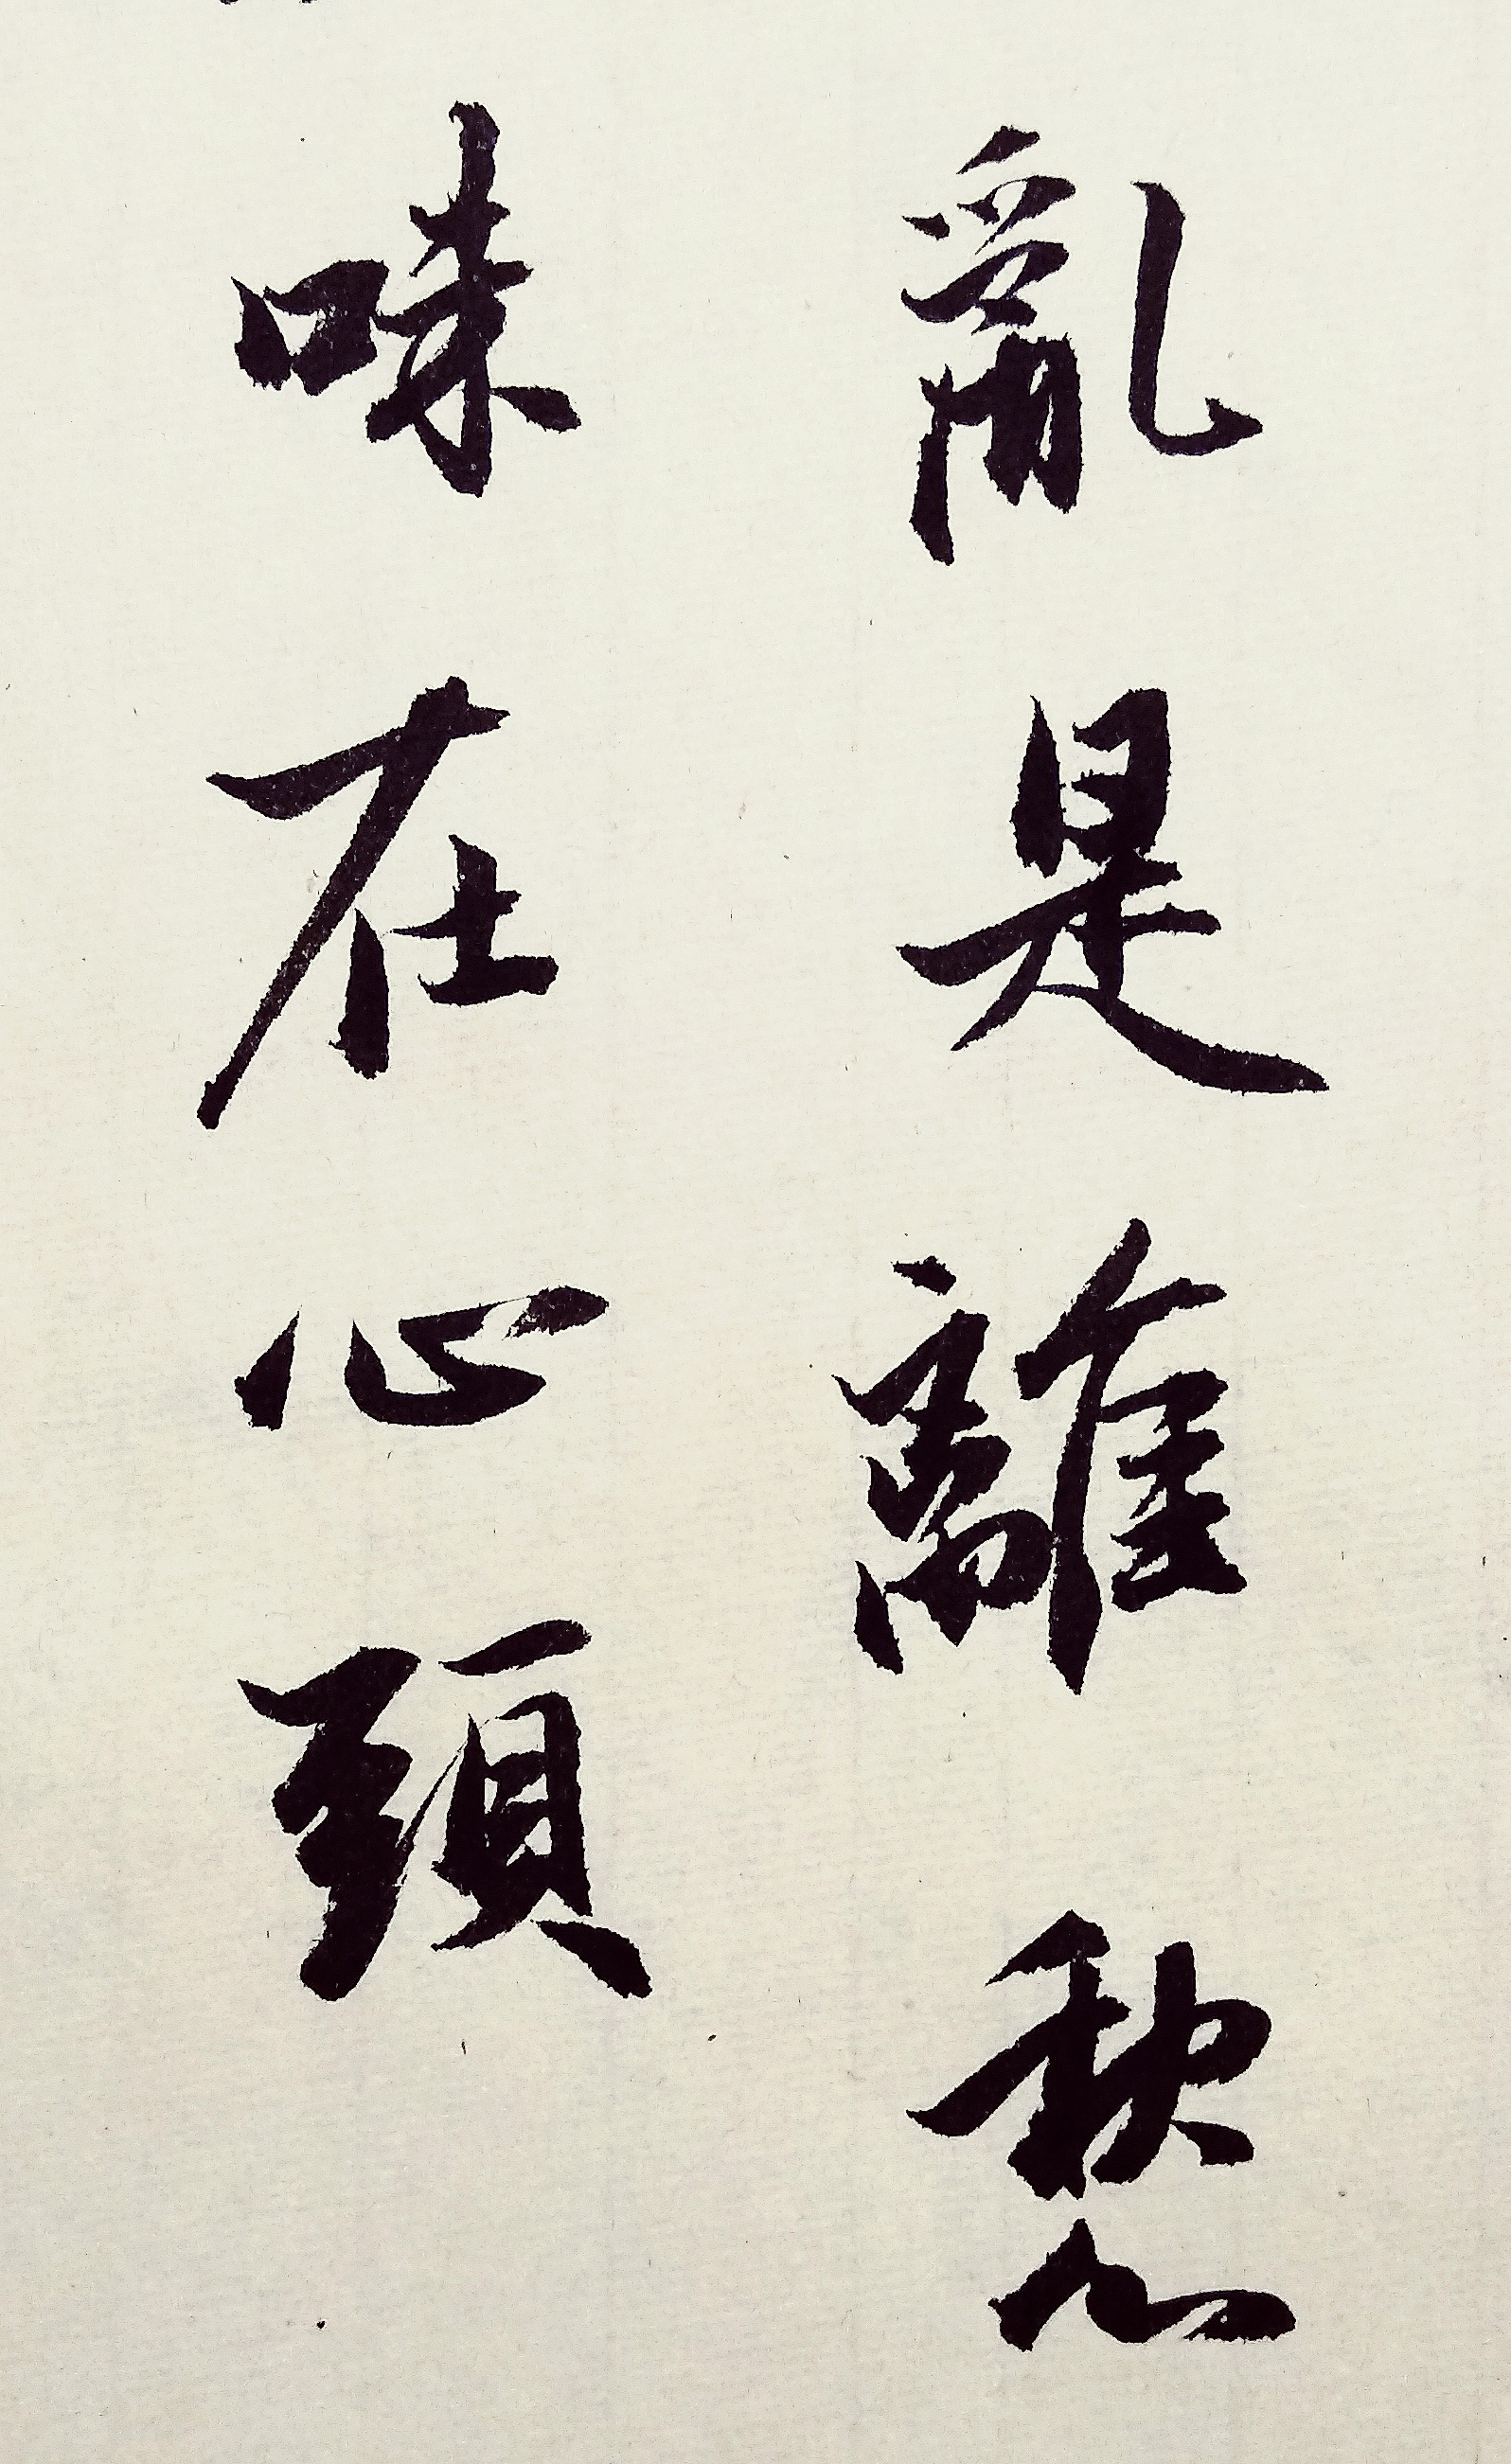 亂是離愁
味在心頭